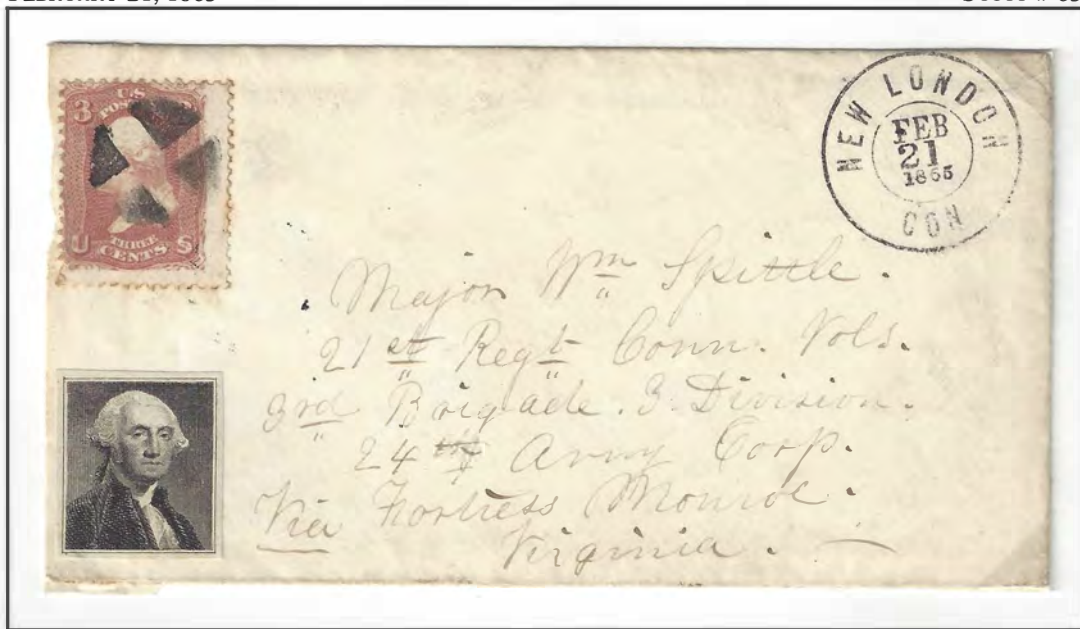 FEBRUARY 21, 1865
3
U.S
POSTAGE
THREE
CENTS
U S
NEW LONDON
FEB
21
1865
CON
Major Wm Spittle.
21st Regt Conn. Vols.
3rd Brigade. 3. Division.
24th Army Corp.
Via Fortress Monroe.
Virginia.